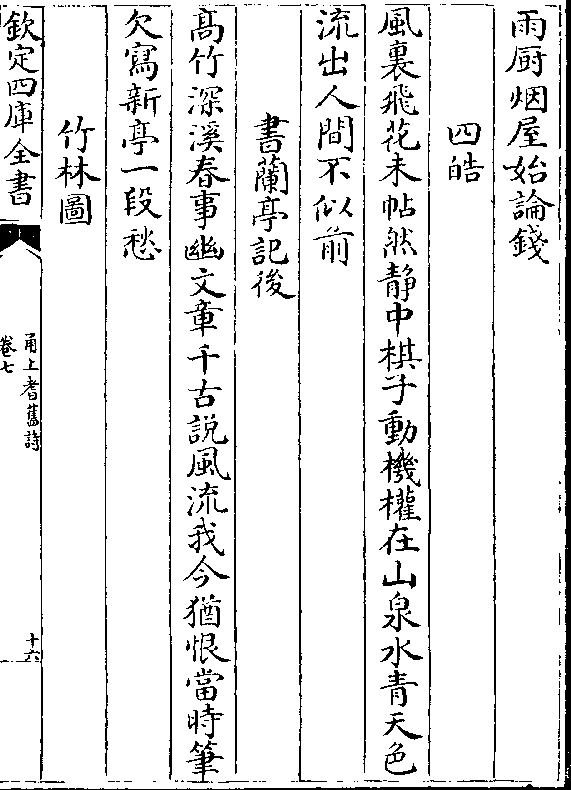 雨厨烟屋始論錢
四皓
風裏飛花未帖然静中棋子動機權在山泉水青天色
流出人間不似前
書蘭亭記後
髙竹深溪春事幽文章千古説風流我今猶恨當時筆
欠寫新亭一段愁
竹林圖
欽定四庫全書
甬上耆舊詩
卷七
十六